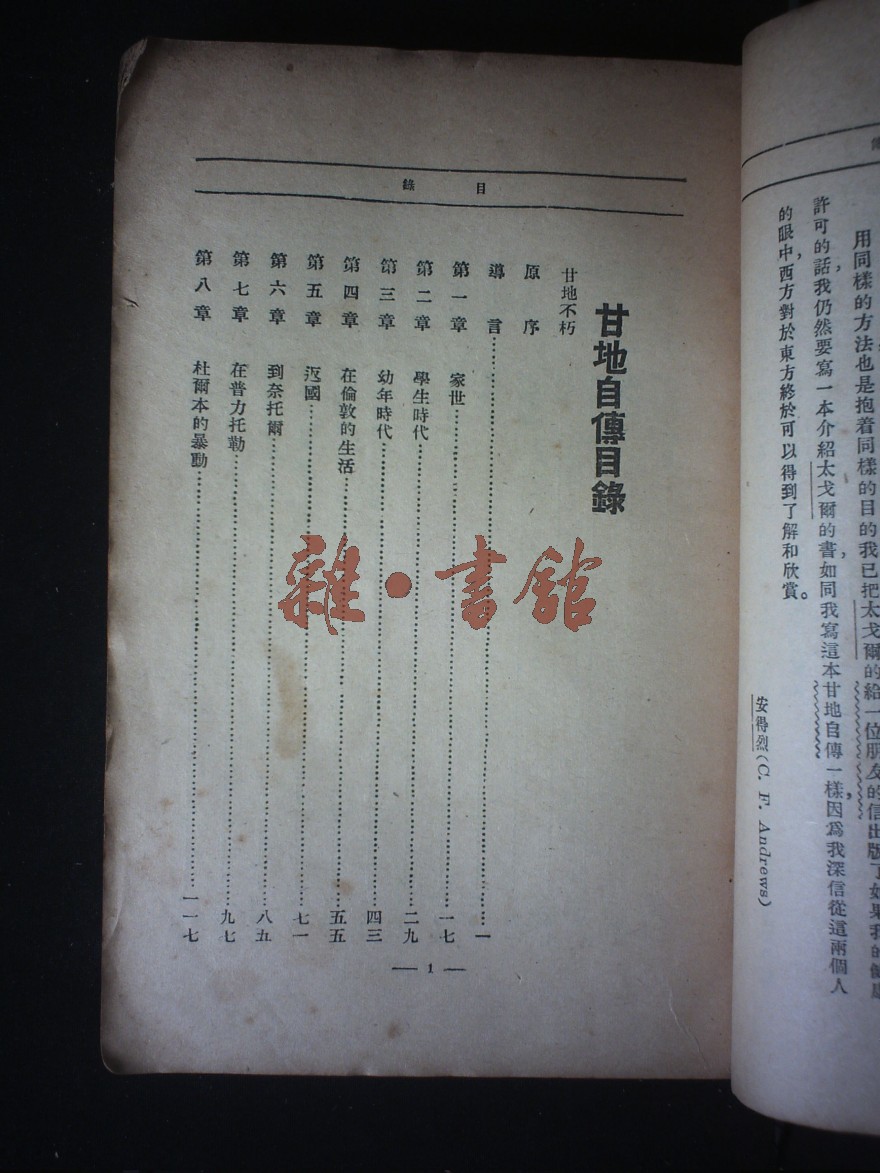 用同樣的方法也是抱着同樣的目的我已把太戈爾的給一位朋友的信出版了如果我的健康
許可的話，我仍然要寫一本介紹太戈爾的書，如同我寫這本甘地自傳一樣，因爲我深信從這兩個人
的眼中，西方對於東方終於可以得到了解和欣賞。
安得烈(C. F. Andrews)
目錄
甘地自傳目錄
甘地不朽
原序
導言……一
第一章 家世……一七
第二章 學生時代……二九
第三章 幼年時代……四三
第四章 在倫敦的生活……五五
第五章 返國……七一
第六章 到奈托爾……八五
第七章 在普力托勒……九七
第八章 杜爾本的暴動……一一七
— 1 —
雜·書館